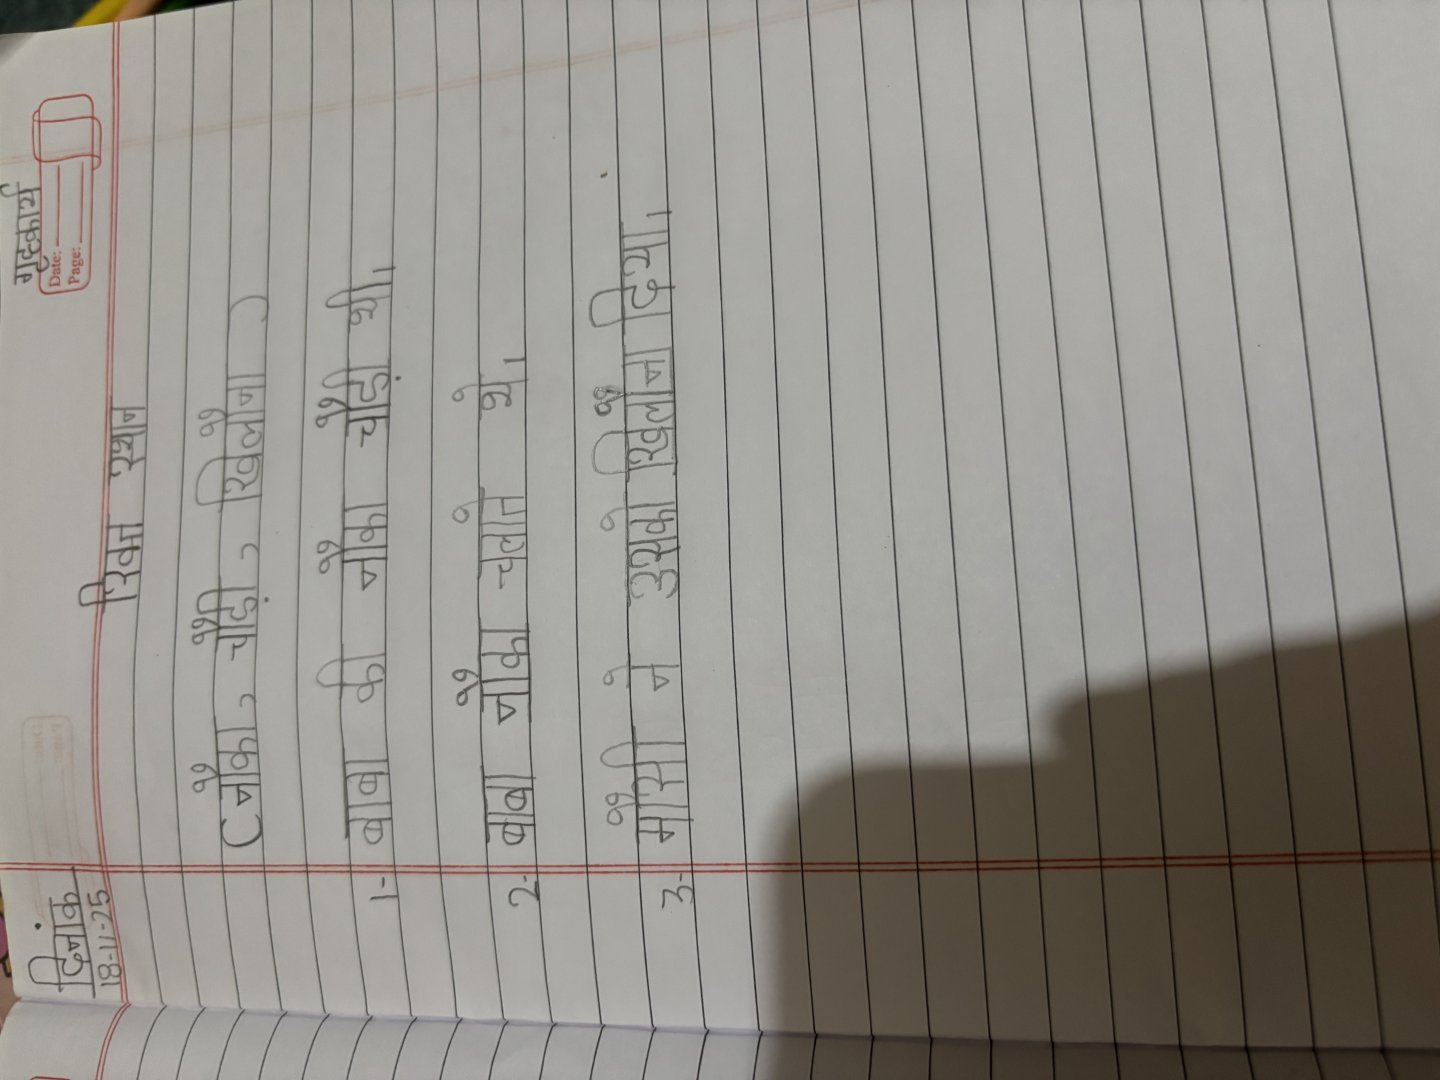 गृहकार्य
दिनांक
18-11-25
Date:
Page:
रिक्त स्थान
(नौका, चौड़ी, खिलौना)
1- बाबा की नौका चौड़ी थी।
2- बाबा नौका चलाते थे।
3- मौसी ने उसको खिलौना दिया।